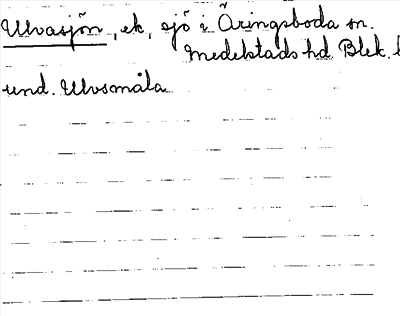 Ulvasjön, ek, sjö i Äringsboda sn.
Medelstads hd Blek. l
und. Ulvsmåla